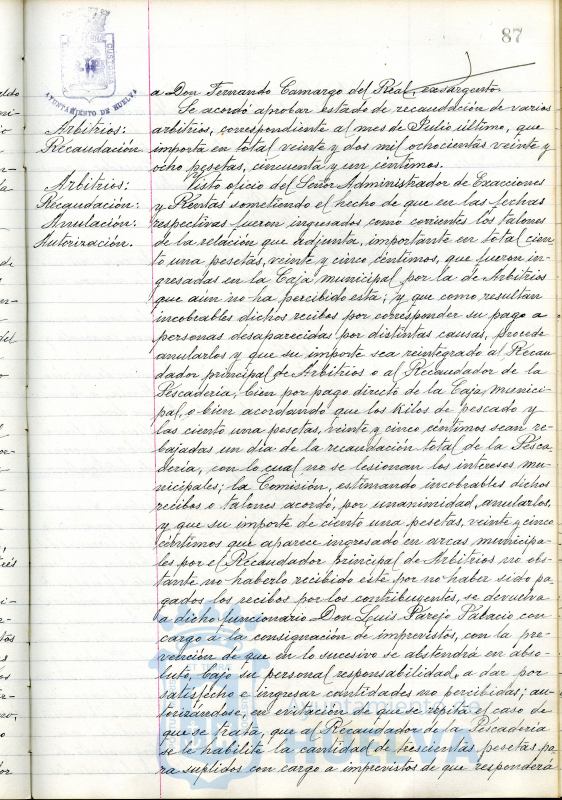 87
AYUNTAMIENTO DE HUELVA
a Don Fernando Camargo del Real, exsargento.
Se acordó aprobar estado de recaudación de varios
Arbitrios:
arbitrios, correspondiente al mes de Julio último, que
Recaudación
importa en total veinte y dos mil ochocientas veinte y
ocho pesetas, cincuenta y un céntimos.
Arbitrios:
Visto oficio del Señor Administrador de Exacciones
Recaudación:
y Rentas sometiendo el hecho de que en las fechas
Anulación:
respectivas fueron ingresados como corrientes los talones
Autorización.
de la relación que adjunta, importante en total cien-
to una pesetas, veinte y cinco céntimos, que fueron in-
gresadas en la Caja municipal por la de Arbitrios
que aún no ha percibido esta; y que como resultan
incobrables dichos recibos por corresponder su pago a
personas desaparecidas por distintas causas, procede
anularlos y que su importe sea reintegrado al Recau-
dador principal de Arbitrios o al Recaudador de la
Pescadería, bien por pago directo de la Caja munici-
pal, o bien acordando que los kilos de pescado y
las ciento una pesetas, veinte y cinco céntimos sean re-
bajadas un día de la recaudación total de la Pesca-
dería, con lo cual no se lesionan los intereses mu-
nicipales; la Comisión, estimando incobrables dichos
recibos o talones acordó, por unanimidad, anularlos,
y que su importe de ciento una pesetas, veinte y cinco
céntimos que aparece ingresado en arcas municipa-
les por el Recaudador principal de Arbitrios no obs-
tante no haberlo recibido éste por no haber sido pa-
gados los recibos por los contribuyentes, se devuelva
a dicho funcionario Don Luis Parejo Palacio con
cargo a la consignación de imprevistos, con la pre-
vención de que en lo sucesivo se abstendrá en abso-
luto, bajo su personal responsabilidad, a dar por
satisfecho e ingresar cantidades no percibidas; au-
torizándose, en evitación de que se repita el caso de
que se trata, que al Recaudador de la Pescadería
se le habilite la cantidad de trescientas pesetas pa-
ra suplidos con cargo a imprevistos de que responderá
Ayuntamiento de
HUELVA